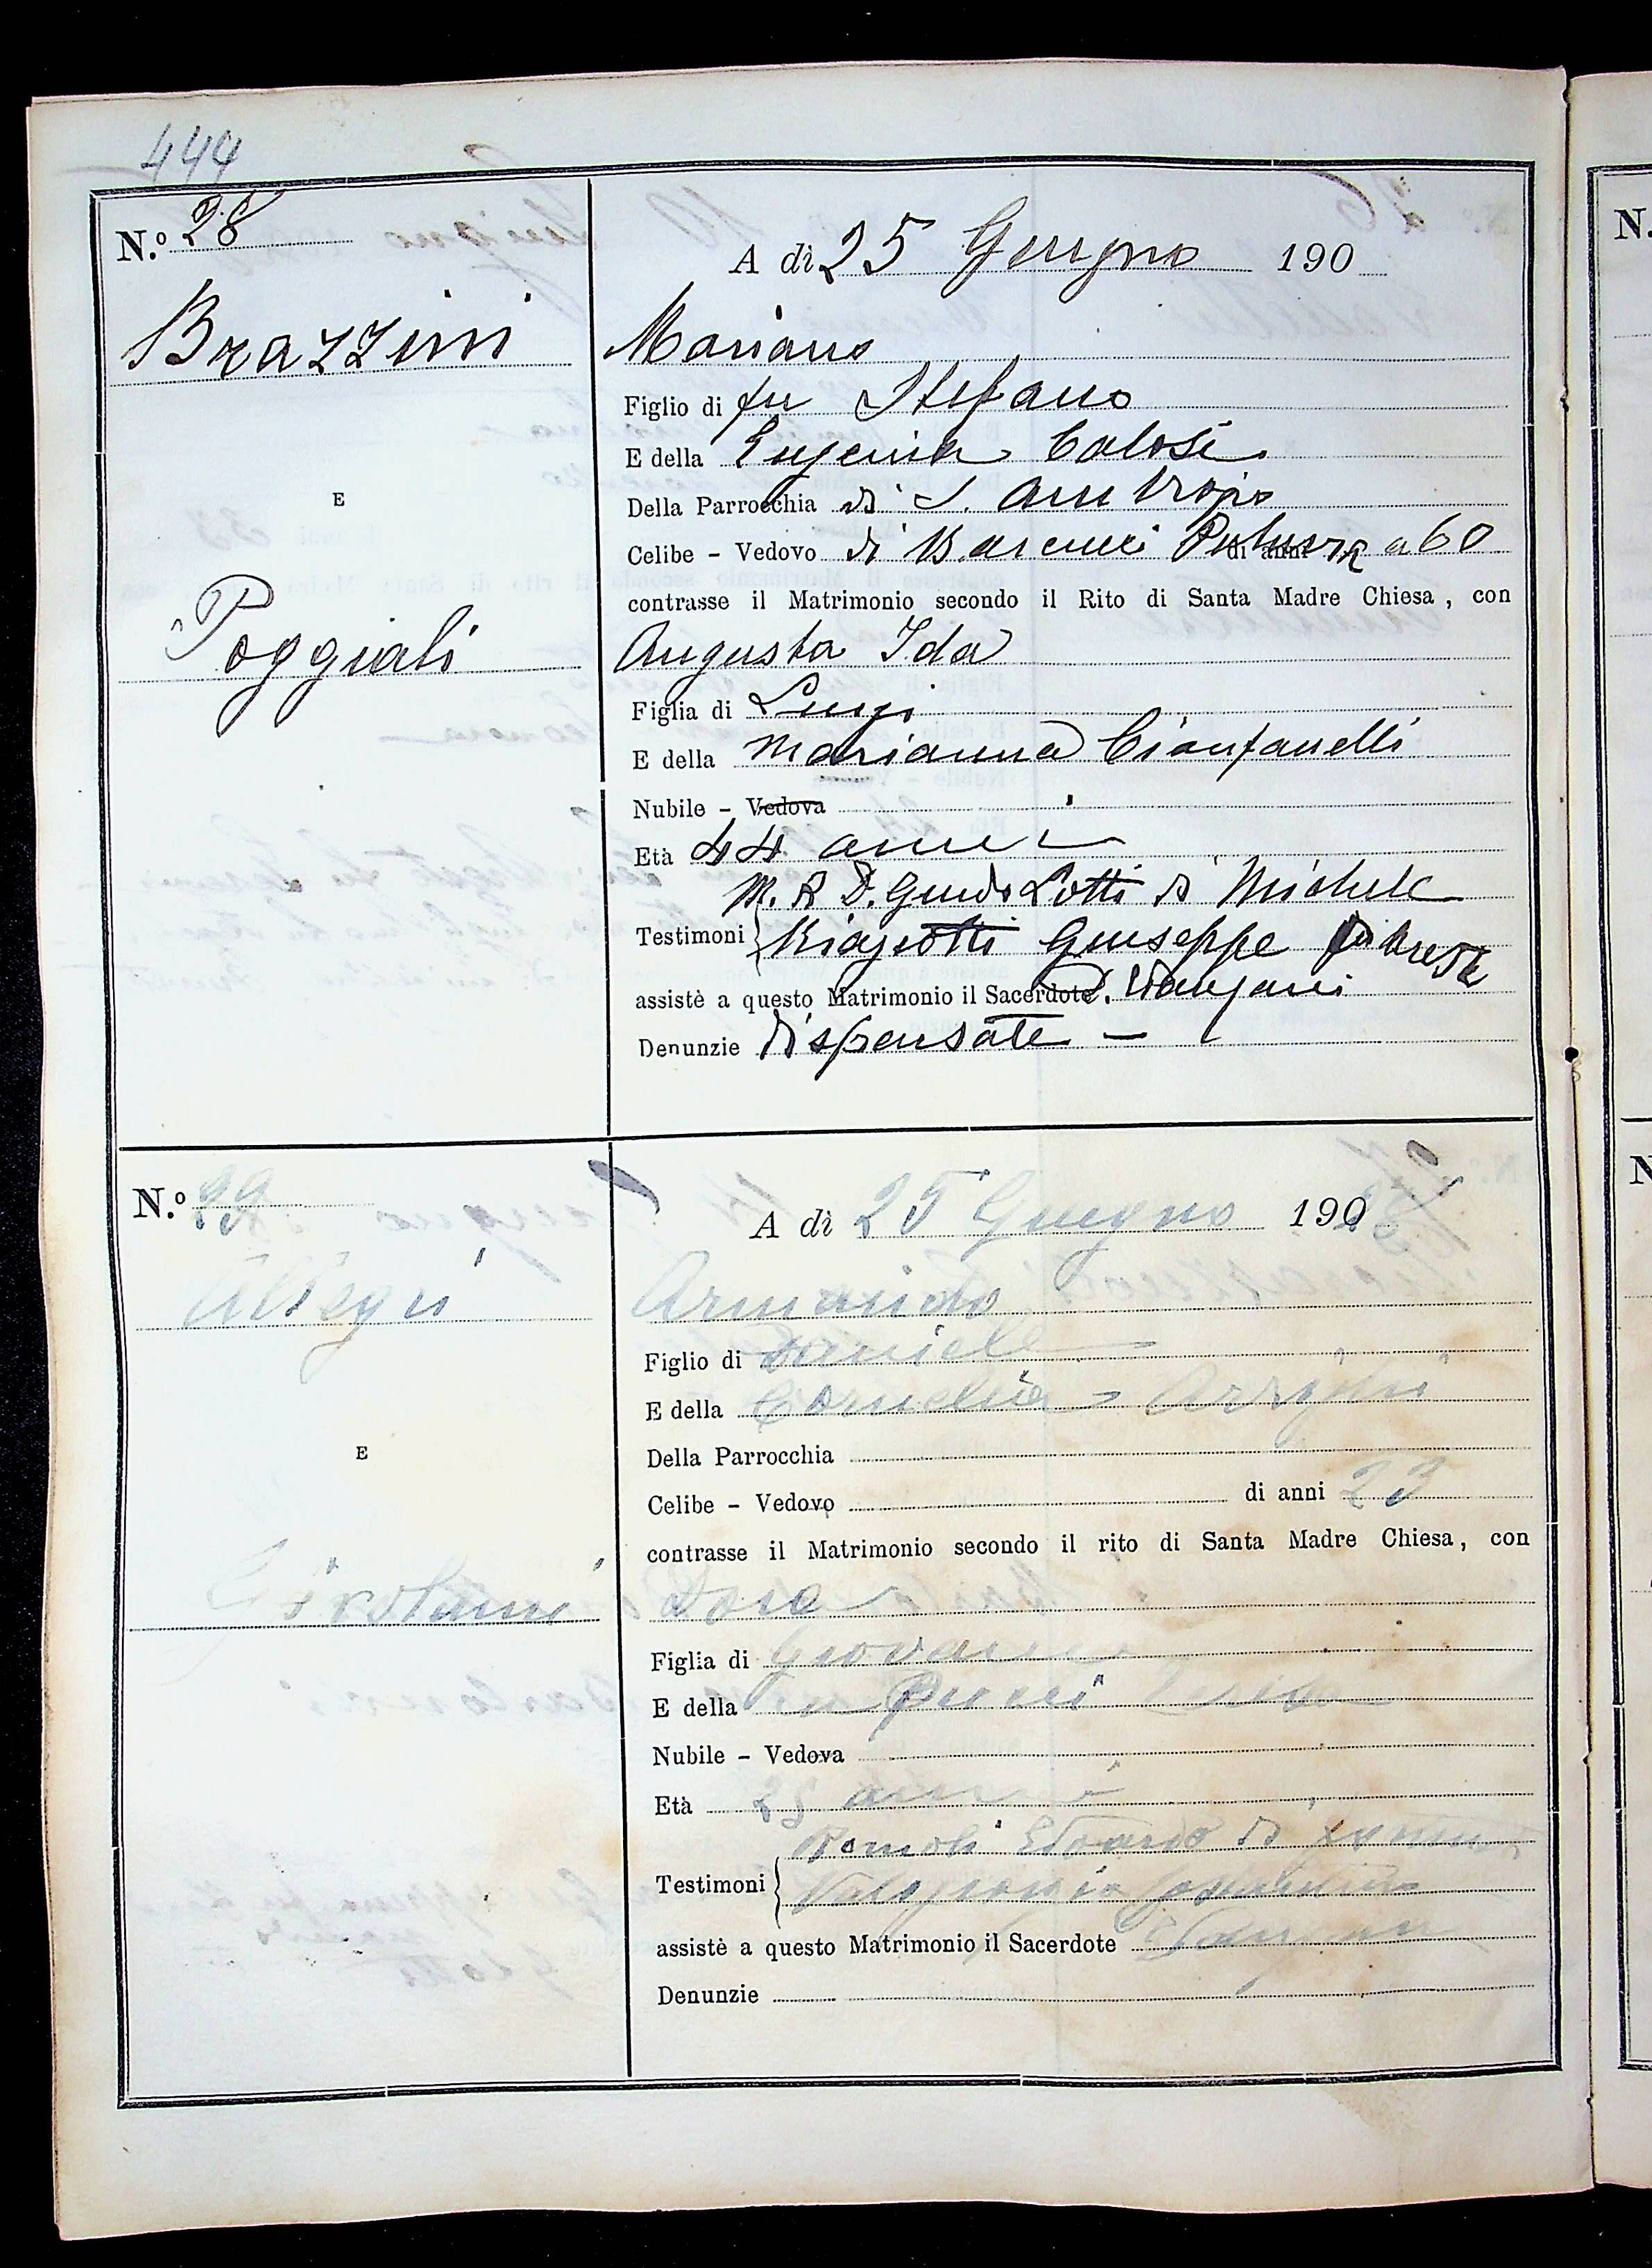 444
N.º 28
A dì 25 Giugno 190
Brazzini
Mariano
Figlio di fu Stefano
E della Eugenia Calosi
E
Della Parrocchia di S. Ambrogio
Celibe - Vedovo di di anni a 60
contrasse il Matrimonio secondo il Rito di Santa Madre Chiesa, con
Poggiali
Augusta Ida
Figlia di Luigi
E della Marianna Cianfanelli
Nubile - Vedova
Età 44 anni
M. R. D. Guido Lotti di Michele
Testimoni Biagiotti Giuseppe
assistè a questo Matrimonio il Sacerdote
Denunzie dispensate —
N.º 29
A dì 25 Giugno 190
Armando
Figlio di Daniele
E della Cornelia
E
Della Parrocchia
Celibe - Vedovo di anni 23
contrasse il Matrimonio secondo il rito di Santa Madre Chiesa, con
Girolami
Figlia di Giovanni
E della Pucci
Nubile - Vedova
Età anni
Romoli Edoardo di
Testimoni
assistè a questo Matrimonio il Sacerdote
Denunzie